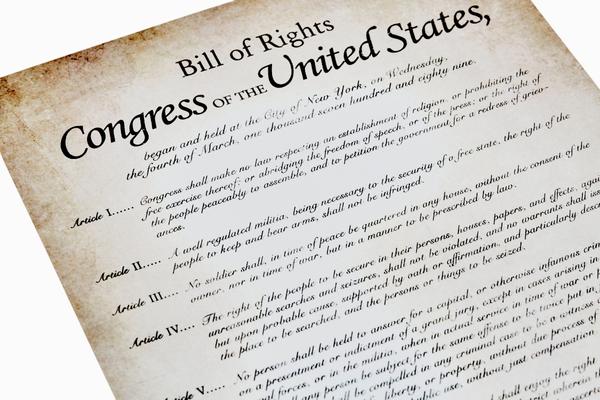 Bill of Rights
Congress OF THE United States,
began and held at the City of New York, on Wednesday,
the fourth of March, one thousand seven hundred and eighty nine.
Article I...... Congress shall make no law respecting an establishment of religion, or prohibiting the
free exercise thereof; or abridging the freedom of speech, or of the press; or the right of
the people peaceably to assemble, and to petition the government for a redress of griev-
ances.
Article II..... A well regulated militia, being necessary to the security of a free state, the right of the
people to keep and bear arms, shall not be infringed.
Article III.... No soldier shall, in time of peace be quartered in any house, without the consent of the
owner, nor in time of war, but in a manner to be prescribed by law.
Article IV.... The right of the people to be secure in their persons, houses, papers, and effects, again
unreasonable searches and seizures, shall not be violated, and no warrants shall iss
but upon probable cause, supported by oath or affirmation, and particularly descr
the place to be searched, and the persons or things to be seized.
Article V..... No person shall be held to answer for a capital, or otherwise infamous crim
on a presentment or indictment of a grand jury, except in cases arising in
forces, or in the militia, when in actual service in time of war or p
any person be subject for the same offense to be twice put in
be compelled in any criminal case to be a witness
liberty, or property, without due process of
public use, without just compensation
shall enjoy the right